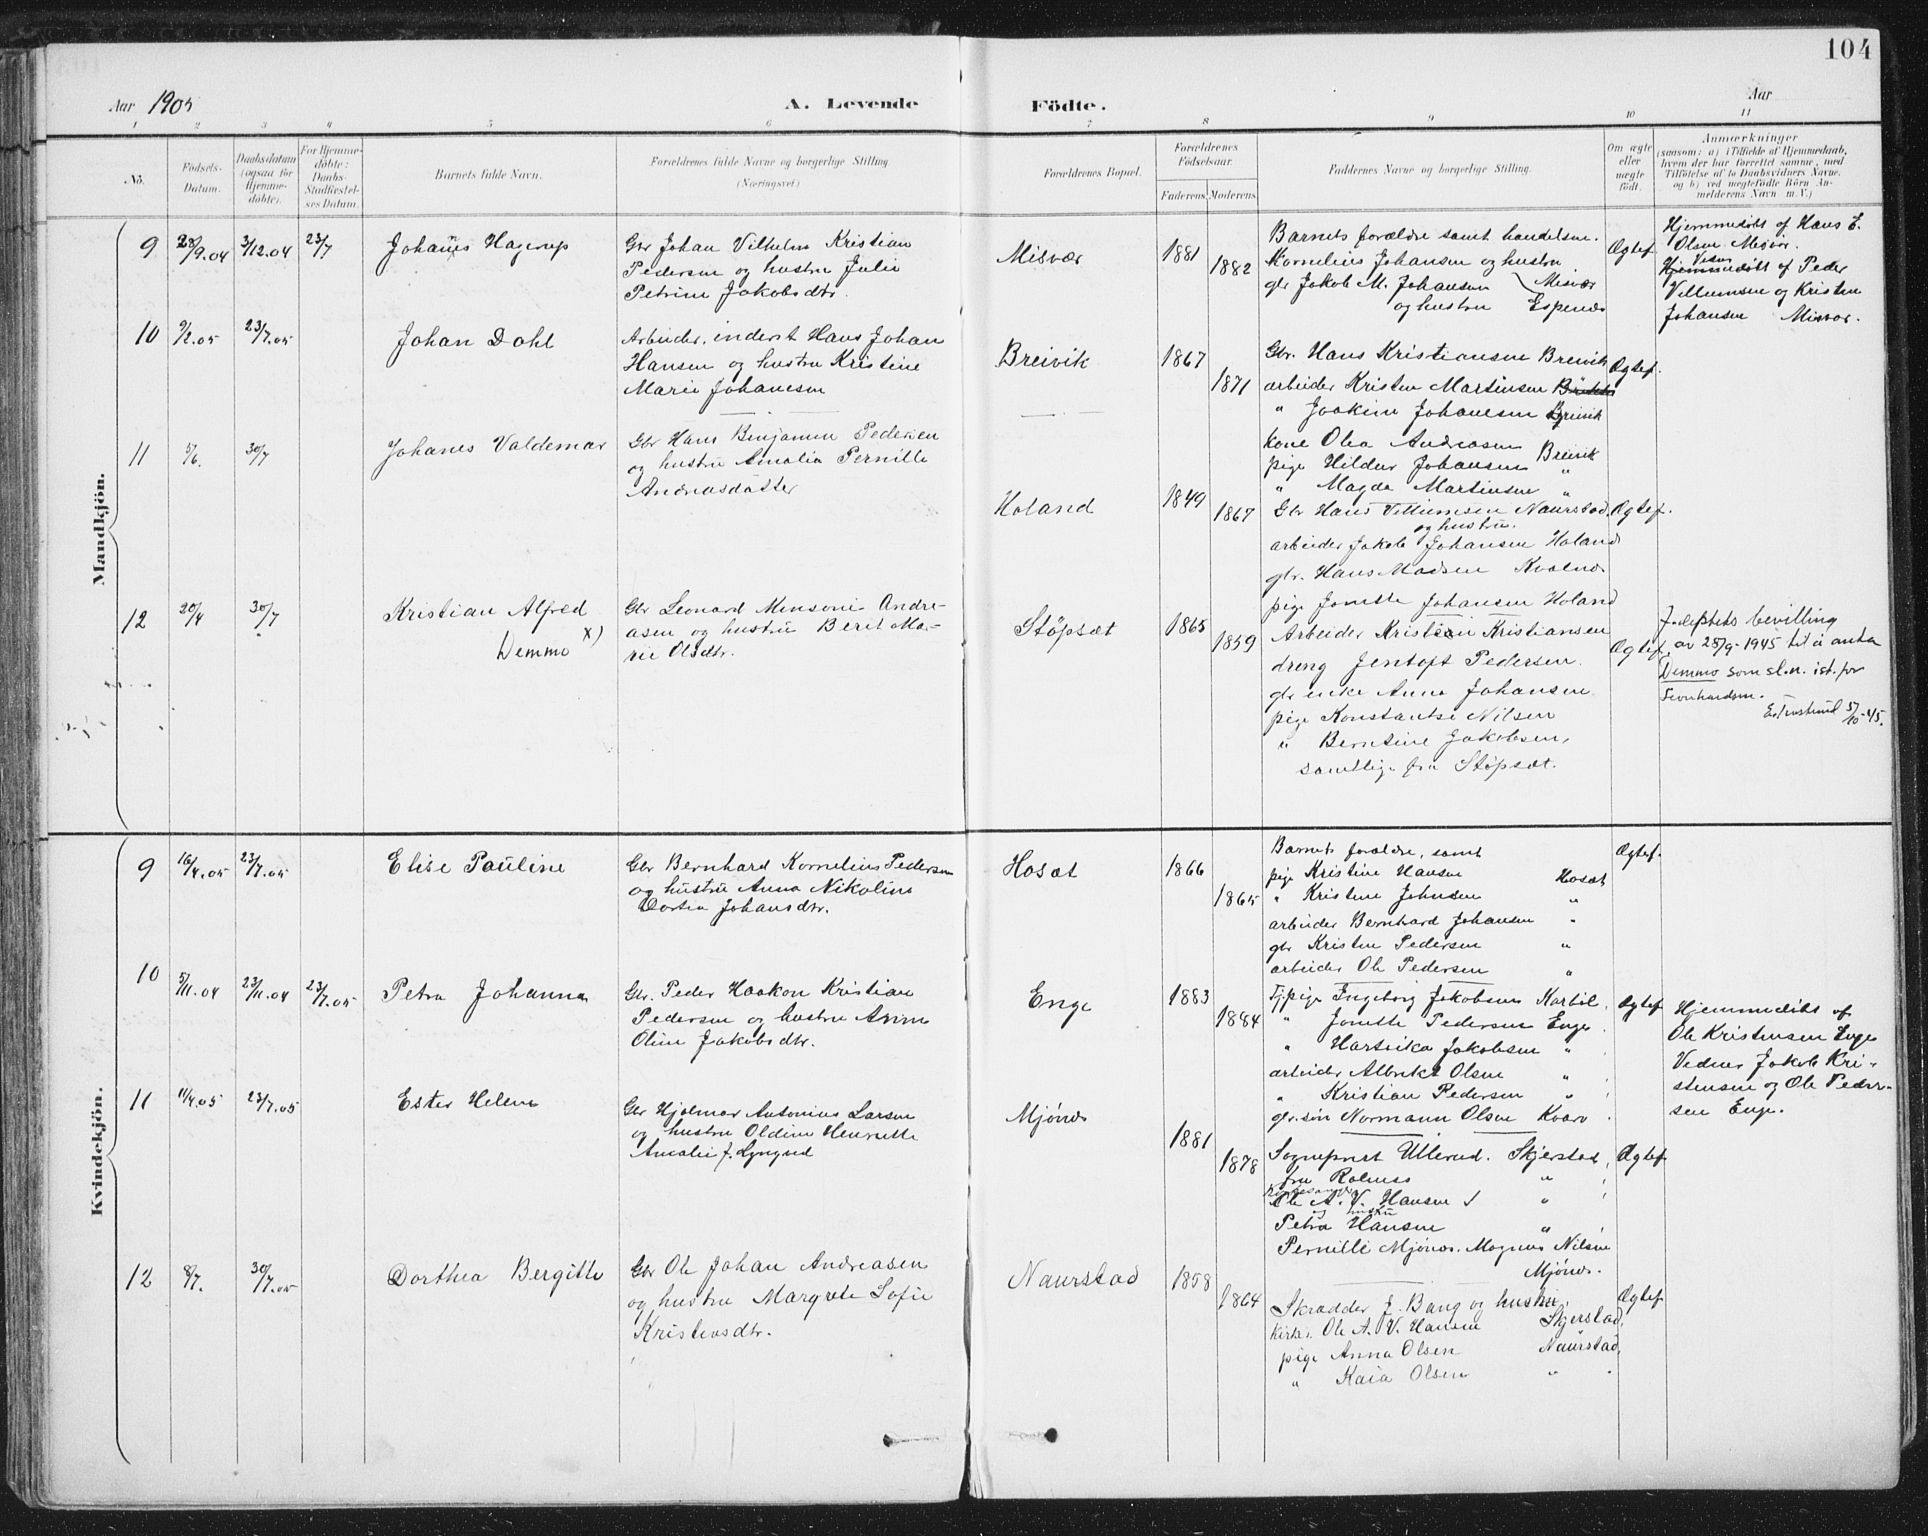 104
Aar 1905
A. Levende
Födte.
Aar
1 2 3 4 5 6 7 8 9 10 11
No.
Födsels-
Datum.
Daabsdatum
(ogsaa for
Hjemme-
döbte).
For Hjemme-
döbte:
Daabs-
Stadfæstel-
ses Datum.
Barnets fulde Navn.
Forældrenes fulde Navne og borgerlige Stilling
(Næringsvei.)
Forældrenes Bopæl.
Forældrenes
Födselsaar.
Faderens. Moderens.
Faddernes Navne og borgerlige Stilling.
Om ægte
eller
uægte
födt.
Anmærkninger
(saasom: a) i Tilfælde af Hjemmedaab,
hvem der har forrettet samme, med
Tilföielse af to Daabsvidners Navne,
og b) ved uægtefödte Börn An-
melderens Navn m. V.)
Mandkjön.
9 28/9.04 3/12.04 23/7
Johanns Hagerup
Gbr Johan Vilhelm Kristian
Pedersen og hustru Julie
Petrine Jakobsdtr.
Misvær
1881
1882
Barnets forældre samt handelsm.
Kornelius Johansen og hustru
gbr Jakob M. Johansen Misvær
og hustru Espenes
Ægtef.
Hjemmedöbt af Hans E.
Olsen Misvær.
Hjemmedöbt af Peder
Villumsen og Kristen
Johansen Misvær.
10 9/2.05 23/7.05
Johan Dahl
Arbeider, inderst Hans Johan
Hansen og hustru Kristine
Marie Johanesen
Breivik
1867
1871
Gbr. Hans Kristiansen Breivik
arbeider Kristen Martinsen
" Joakim Johanesen Breivik
kone Olea Andreasen Breivik
pige Hildur Johansen "
" Magda Martinsen "
Ægtef.
11 5/6. 30/7
Johanes Valdemar
Gbr Hans Benjamin Pedersen
og hustru Amalia Pernille
Andreasdatter
Holand
1849
1867
Gbr Hans Villumsen Naurstad.
og hustru.
arbeider Jakob Johansen Holand
gbr. Hans Madsen Kvalnes
pige Jonette Johansen Holand
Ægtef.
12 20/4 30/7
Kristian Alfred
Demmo x)
Gbr Leonard Mensoni Andre-
asen og hustru Berit Ma-
rie Olsdtr.
Stöpsæt
1865
1859
Arbeider Kristian Kristiansen
dreng Jentoft Pedersen.
gbr enke Anna Johansen
pige Konstantse Nilsen
" Berntine Jakobsen,
samtlige fra Stöpsæt.
Ægtef.
J.deptets bevilling
av 28/9-1945 til å anta
Demmo som sl.n. ist. for
Leonhardsen.
5/10-45.
Kvindekjön.
9 16/4.05 23/7.05
Elise Pauline
Gbr Bernhard Kornelius Pedersen
og hustru Anna Nikoline
Dortea Johansdtr.
Hosæt
1866
1865
Barnets forældre, samt
pige Kristine Hansen Hosæt
" Kristine Johnsen "
arbeider Bernhard Johansen "
gbr Kristen Pedersen "
arbeider Ole Pedersen "
Ægtef.
10 5/11.04 23/11.04 23/7.05
Petra Johanna
Gbr. Peder Haakon Kristian
Pedersen og hustru Anna
Oline Jakobsdtr.
Enge
1883
1884
Tjpige Ingeborg Jakobsen Karböl
" Jonette Pedersen Enge
" Hartvika Jakobsen "
arbeider Albrikt Olsen "
" Kristian Pedersen "
gbr.sön Normann Olsen Kvarv
Ægtef
Hjemmedöbt af
Ole Kristensen Enge
Vidner Jakob Kri-
stensen og Ole Peder-
sen Enge.
11 11/4.05 23/7.05
Ester Helene
Gbr Hjalmar Antonius Larsen
og hustru Oldine Henriette
Amalie f. Lyngved
Mjönes
1881
1878
Sogneprest Ullerud. Skjerstad
fru Rolness "
Kirkesanger
Ole A. V. Hansen "
og hustru
Petra Hansen "
Pernille Mjönes. Magnus Nilsen
Mjönes.
Ægtef
12 8/7. 30/7.05
Dorthea Bergitte
Gbr Ole Johan Andreasen
og hustru Margrete Sofie
Kristensdtr.
Naurstad
1858
1864
Skrædder J. Bang og hustru.
Kirkes. Ole A. V. Hansen Skjerstad,
pige Anna Olsen Naurstad
" Kaia Olsen "
Ægtef